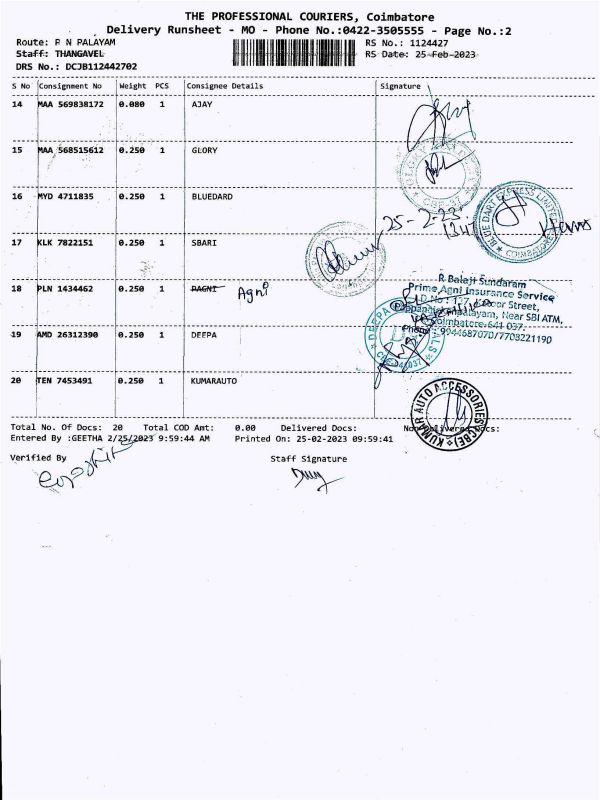 THE PROFESSIONAL COURIERS, Coimbatore
Delivery Runsheet - MO - Phone No.:0422-3505555 - Page No.:2
Route: P N PALAYAM RS No.: 1124427
Staff: THANGAVEL RS Date: 25-Feb-2023
DRS No.: DCJB112442702
S No Consignment No Weight PCS Consignee Details Signature
14 MAA 569838172 0.080 1 AJAY
15 MAA 568515612 0.250 1 GLORY
16 MYD 4711835 0.250 1 BLUEDARD
25-2-23
1347
BLUE DART EXPRESS LIMITED
COIMBATORE
17 KLK 7822151 0.250 1 SBARI
18 PLN 1434462 0.250 1 PAGNI Agni
R Balaji Sundaram
Prime Agni Insurance Service
Street,
Near SBI ATM,
Coimbatore-641 037.
Phone: 9944687070/7708221190
19 AMD 26312390 0.250 1 DEEPA
DEEPA
20 TEN 7453491 0.250 1 KUMARAUTO
KUMAR AUTO ACCESSORIES (CBE)
Total No. Of Docs: 20 Total COD Amt: 0.00 Delivered Docs: Non-Delivered Docs:
Entered By :GEETHA 2/25/2023 9:59:44 AM Printed On: 25-02-2023 09:59:41
Verified By Staff Signature